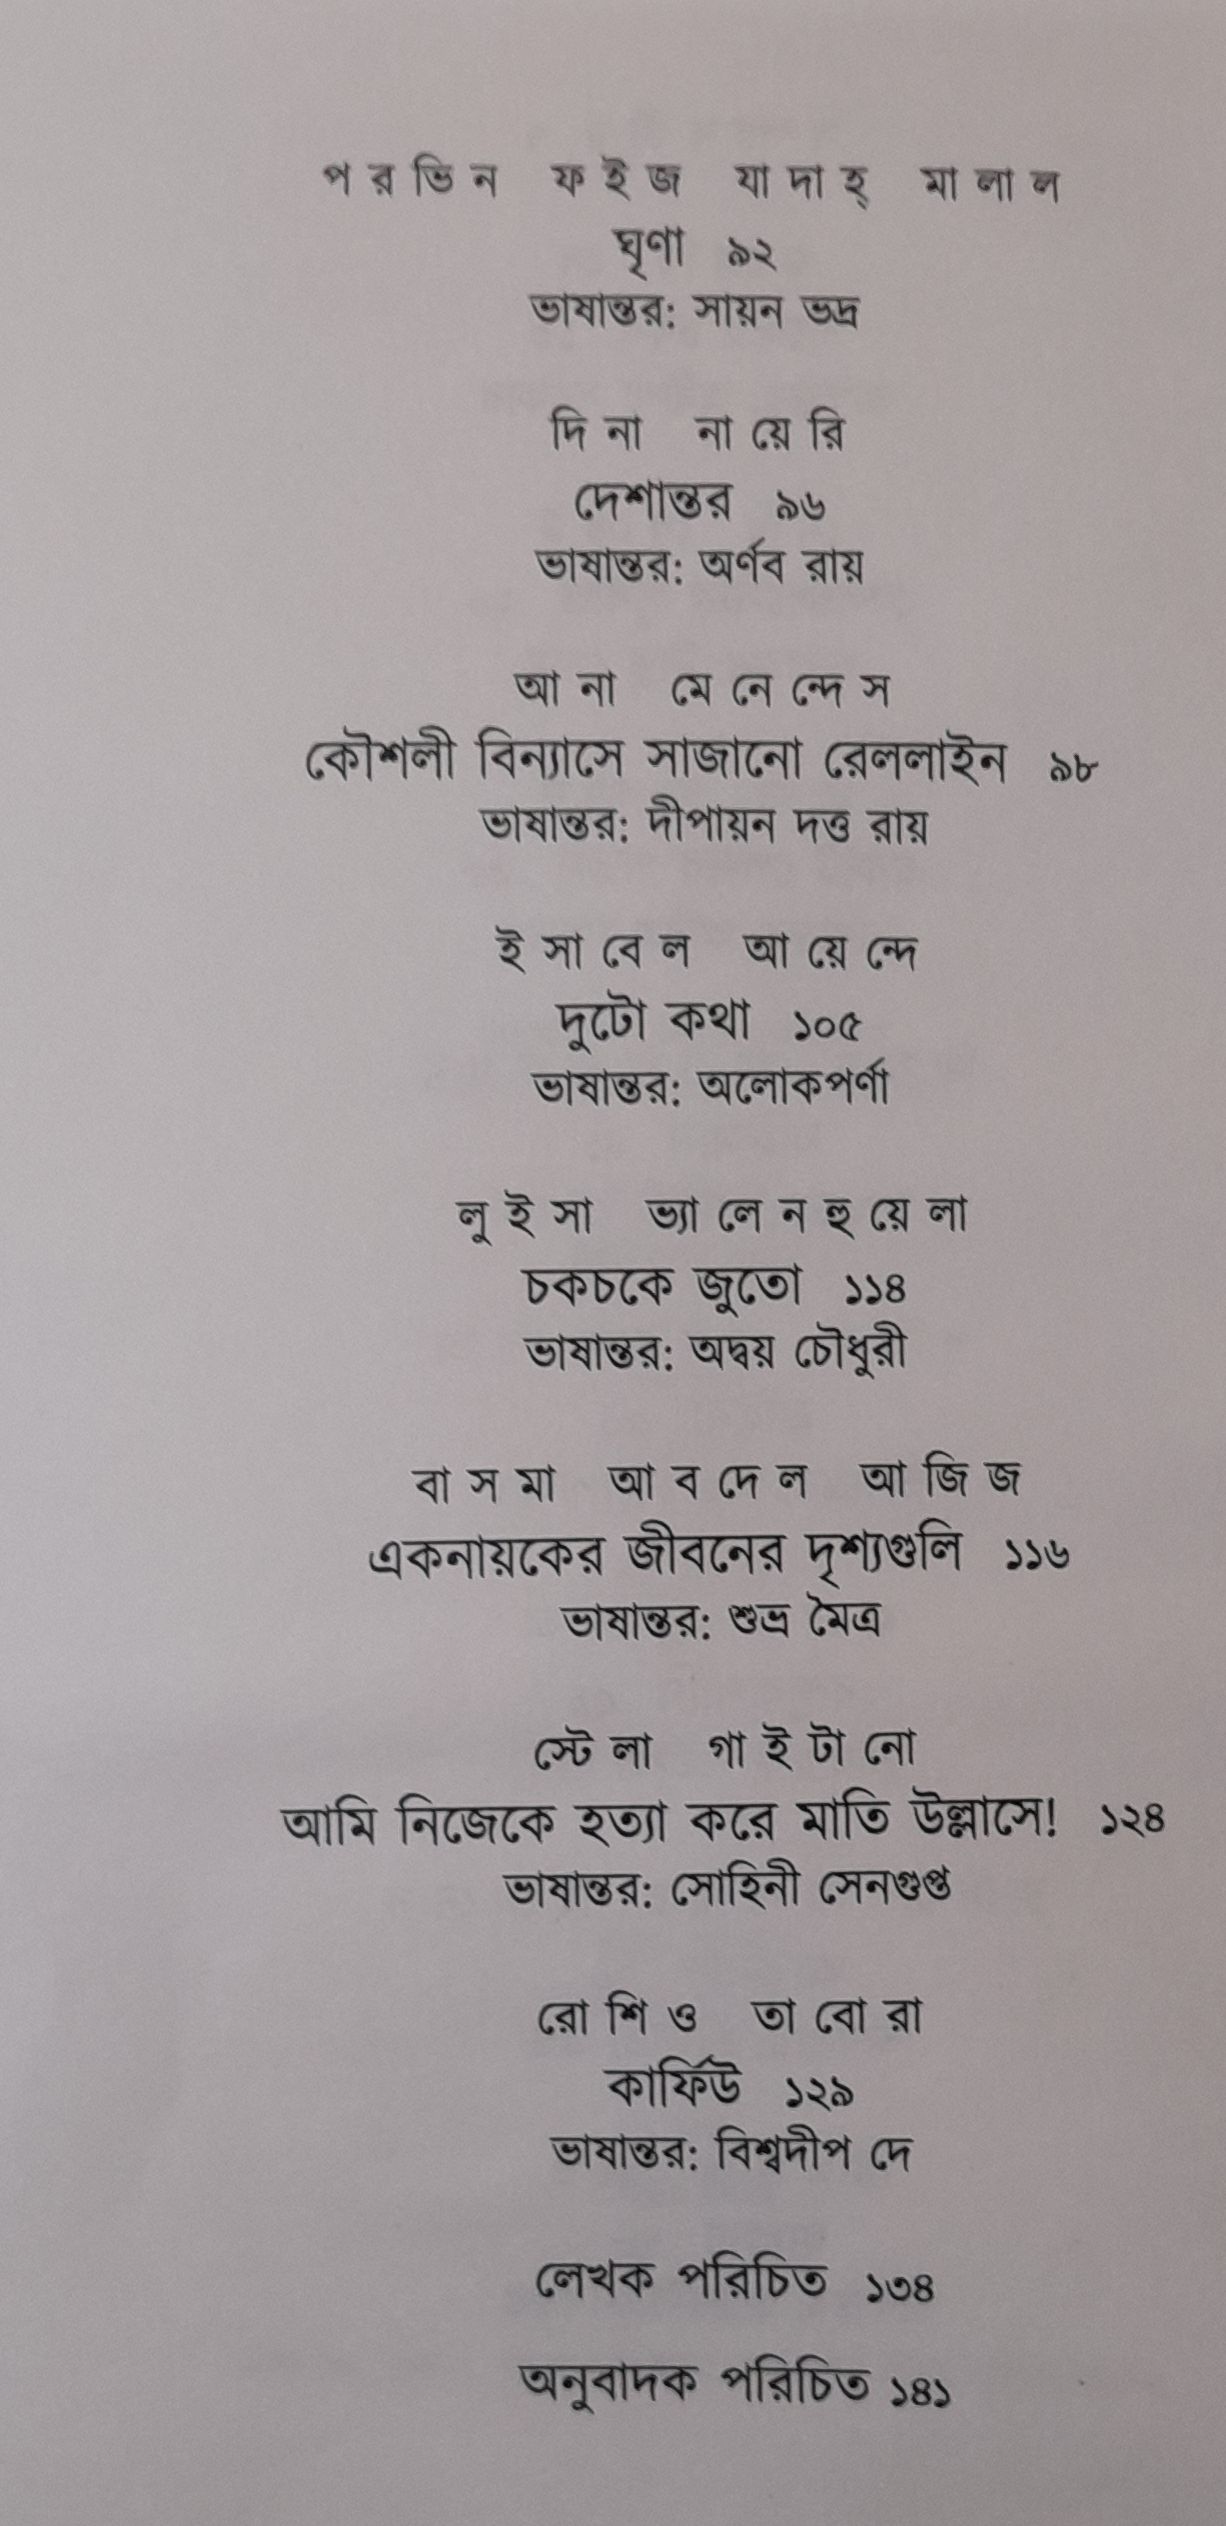 প র ভি ন ফ ই জ যা দা হ্ মা লা ল
ঘৃণা ৯২
ভাষান্তর: সায়ন ভদ্র
দি না না য়ে রি
দেশান্তর ৯৬
ভাষান্তর: অর্ণব রায়
আ না মে নে ন্দে স
কৌশলী বিন্যাসে সাজানো রেললাইন ৯৮
ভাষান্তর: দীপায়ন দত্ত রায়
ই সা বে ল আ য়ে ন্দে
দুটো কথা ১০৫
ভাষান্তর: অলোকপর্ণা
লু ই সা ভ্যা লে ন হু য়ে লা
চকচকে জুতো ১১৪
ভাষান্তর: অদ্বয় চৌধুরী
বা স মা আ ব দে ল আ জি জ
একনায়কের জীবনের দৃশ্যগুলি ১১৬
ভাষান্তর: শুভ্র মৈত্র
স্টে লা গা ই টা নো
আমি নিজেকে হত্যা করে মাতি উল্লাসে! ১২৪
ভাষান্তর: সোহিনী সেনগুপ্ত
রো শি ও তা বো রা
কার্ফিউ ১২৯
ভাষান্তর: বিশ্বদীপ দে
লেখক পরিচিত ১৩৪
অনুবাদক পরিচিত ১৪১